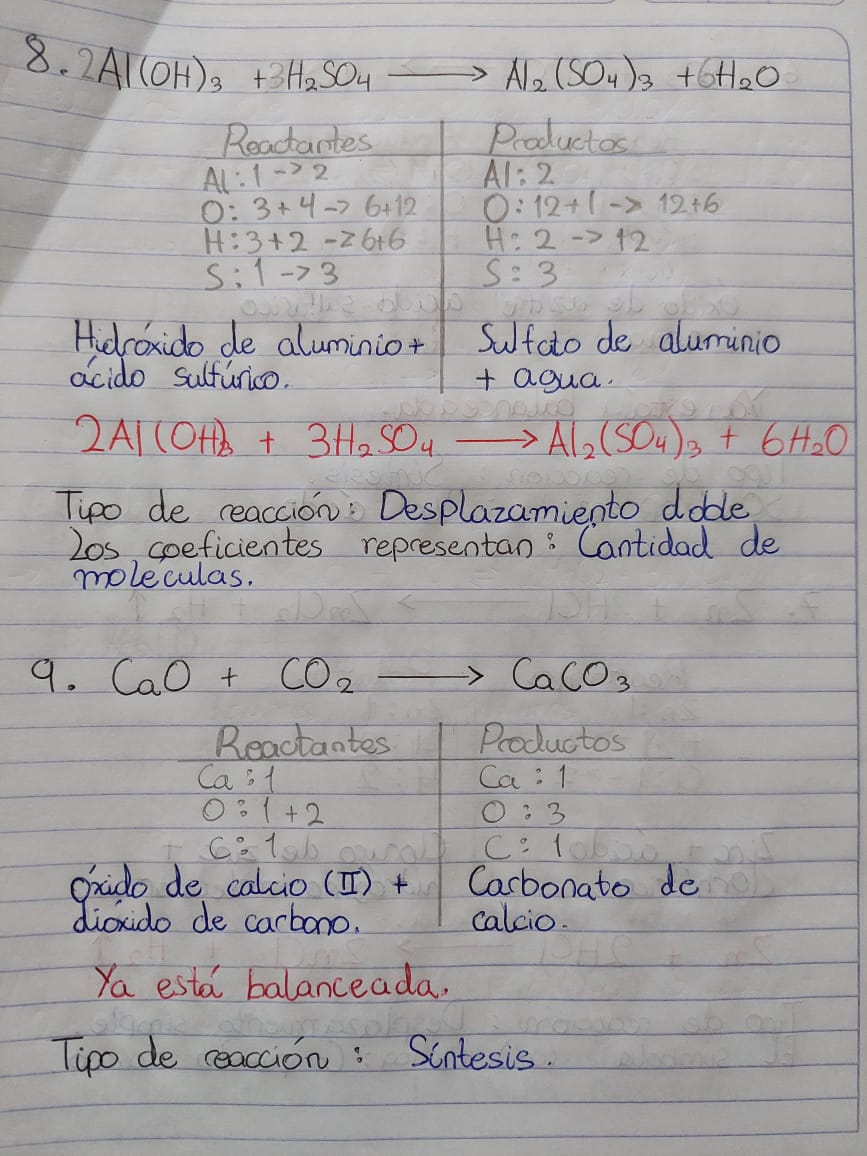 8. 2Al(OH)₃ + 3H₂SO₄ ⟶ Al₂(SO₄)₃ + 6H₂O
Reactantes | Productos
Al: 1 -> 2 | Al: 2
O: 3+4 -> 6+12 | O: 12+1 -> 12+6
H: 3+2 -> 6+6 | H: 2 -> 12
S: 1 -> 3 | S: 3
Hidróxido de aluminio + | Sulfato de aluminio
ácido sulfúrico. | + agua.
2Al(OH)₃ + 3H₂SO₄ ⟶ Al₂(SO₄)₃ + 6H₂O
Tipo de reacción: Desplazamiento doble
Los coeficientes representan: Cantidad de
moleculas.
9. CaO + CO₂ ⟶ CaCO₃
Reactantes | Productos
Ca: 1 | Ca: 1
O: 1+2 | O: 3
C: 1 | C: 1
óxido de calcio (II) + | Carbonato de
dióxido de carbono. | calcio.
Ya está balanceada.
Tipo de reacción: Síntesis.